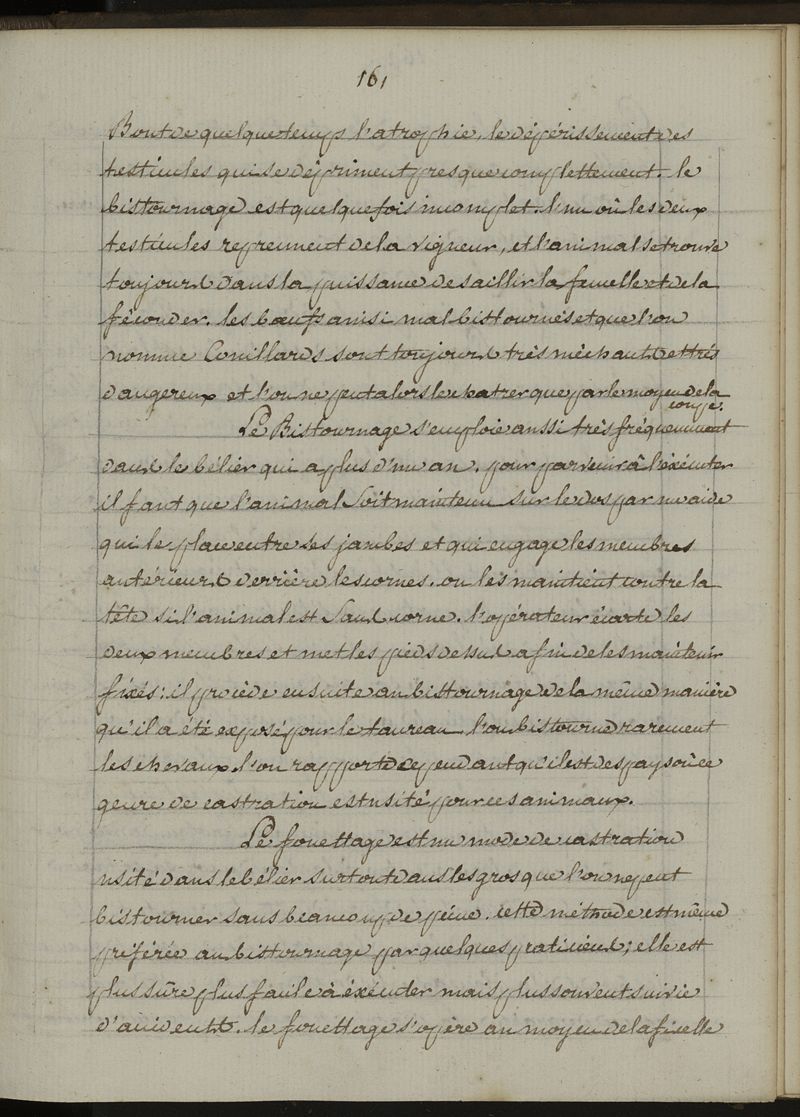 161
Bout de quelque temps l'atrophie, le dépérissement des
testicules qui se dépriment presque complettement. le
bistournage est quelque fois incomplet. l'un où les deux
testicules reprennent de la vigneur, et l'animal se trouve
toujours dans la puissance de saillir la femelle et de la
féconder. les bœufs ainsi mal bistournés et que l'on
nomme Couillards sont toujours très méchants et très
dangereux et l'on ne peut alors les chatrer que par le moyen de la
coupe.
Le Bistournage s'emploie aussi très fréquemment
dans le bélier qui a plus d'un an. pour parvenir à l'éxécuter
il faut que l'animal Soit maintenu sur le dos par un aide
qui le place entre ses jambes et qui engage les membres
antérieurs derrière les cornes. ou les maintient contre la
tête si l'animal est Sans corne. l'opérateur écarte les
deux membres et met les pieds dessus afin de les maintenir
fixés: il procède ensuite au bistournage de la même manière
qu'il a été exposé pour le taureau. l'on bistourne rarement
les chevaux. l'on rapporte cependant qu'il est des pays où ce
genre de castration est usité pour ces animaux.
Le fouettage est un mode de castration
usité dans le bélier surtout dans les gros que l'on ne peut
bistourner sans beaucoup de peine. cette méthode est même
préférée au bistournage par quelques praticiens; elle est
plus sûre plus facile à éxécuter mais plus souvent suivie
d'accidents. le fouettage s'opère au moyen de la ficelle